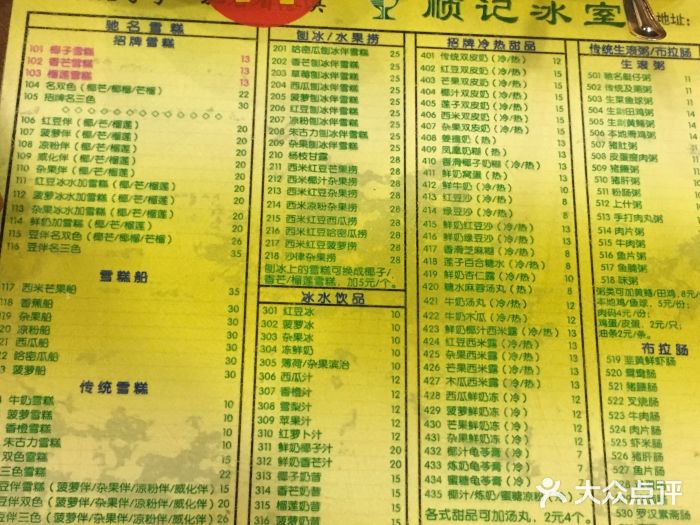 顺记冰室
地址：
驰名雪糕
招牌雪糕
101 椰子雪糕 13
102 香芒雪糕 13
103 榴莲雪糕 13
104 名双色（椰芒/椰榴/芒榴） 22
105 招牌名三色 30
106 红豆伴（椰/芒/榴莲） 20
107 菠萝伴（椰/芒/榴莲） 20
108 凉粉伴（椰/芒/榴莲） 20
109 威化伴（椰/芒/榴莲） 20
110 杂果伴（椰/芒/榴莲） 20
111 红豆冰水加雪糕（椰/芒/榴莲） 20
112 菠萝冰水加雪糕（椰/芒/榴莲） 20
113 杂果冰水加雪糕（椰/芒/榴莲） 20
114 鲜奶加雪糕（椰/芒/榴莲） 20
115 豆伴名双色（椰芒/椰榴/芒榴） 26
116 豆伴名三色 35
雪糕船
117 西米芒果船 35
118 香蕉船 30
119 杂果船 30
120 凉粉船 30
21 西瓜船 30
22 哈密瓜船 30
23 菠萝船 30
传统雪糕
牛奶雪糕
菠萝雪糕
香橙雪糕
朱古力雪糕
双色雪糕
三色雪糕
豆伴雪糕（菠萝伴/杂果伴/凉粉伴/威化伴） 16
豆伴双色（菠萝伴/杂果伴/凉粉伴/威化伴） 20
豆伴三色
刨冰/水果捞
201 哈密瓜刨冰伴雪糕 25
202 香芒刨冰伴雪糕 25
203 草莓刨冰伴雪糕 25
204 西瓜刨冰伴雪糕 25
205 菠萝刨冰伴雪糕 25
206 红豆刨冰伴雪糕 25
207 凉粉刨冰伴雪糕 25
208 朱古力刨冰伴雪糕 25
209 杂果刨冰伴雪糕 28
210 杨枝甘露 28
211 西米红豆芒果捞 28
212 西米椰汁杂果捞 28
213 西米椰汁芒果捞 28
214 西米红豆杂果捞 28
215 西米红豆西瓜捞 28
216 西米红豆哈密瓜捞 28
217 西米红豆菠萝捞 28
218 沙律杂果捞 28
刨冰上的雪糕可换成椰子/
香芒/榴莲雪糕，加5元/个。
冰水饮品
301 红豆冰 10
302 菠萝冰 10
303 杂果冰 10
304 冻鲜奶 10
305 薄荷/杂果滨治 10
306 西瓜汁 12
307 香橙汁 12
308 雪梨汁 12
309 苹果汁 12
310 红萝卜汁 12
311 鲜奶椰子汁 12
312 鲜奶香芒汁 12
313 椰子奶昔
314 香芒奶昔
315 红豆奶昔
316 菠萝奶昔
招牌冷热甜品
401 传统双皮奶（冷/热） 12
402 红豆双皮奶（冷/热） 13
403 芒果双皮奶（冷/热） 13
404 椰汁双皮奶（冷/热） 13
405 莲子双皮奶（冷/热） 13
406 西米双皮奶（冷/热） 13
407 杂果双皮奶（冷/热） 13
408 姜撞奶（热）
409 凤凰奶糊（热）
410 香滑椰子奶糊（冷/热）
411 鲜奶窝蛋（热）
412 鲜牛奶（冷/热）
413 红豆沙（冷/热） 8
414 绿豆沙（冷/热） 8
415 鲜奶红豆沙（冷/热）
416 鲜奶绿豆沙（冷/热）
417 香滑芝麻糊（冷/热） 8
418 莲子百合糖水（冷/热）
419 鲜奶杏仁露（冷/热）
420 糖水麻蓉汤丸（热）
421 牛奶汤丸（冷/热）
422 牛奶木瓜（冷/热）
423 鲜奶椰汁西米露（冷/热） 13
424 红豆西米露（冷/热） 13
425 杂果西米露（冷/热） 13
426 芒果西米露（冷/热） 13
427 木瓜西米露（冷/热） 13
428 西瓜鲜奶冻（冷） 12
429 菠萝鲜奶冻（冷） 12
430 芒果鲜奶冻（冷） 12
431 杂果鲜奶冻（冷） 12
432 椰汁龟苓膏（冷/热） 12
433 炼奶龟苓膏（冷/热） 12
434 蜜糖龟苓膏（冷/热） 12
435 椰汁/炼奶/蜜糖凉粉（冷/热）
各式甜品可加汤丸，2元4个。
传统生滚粥/布拉肠
生滚粥
501 驰名艇仔粥
502 传统及第粥
503 生菜鱼球粥
504 生剥田鸡粥
505 生剥黄鳝粥
506 本地滑鸡粥
507 猪肚粥
508 皮蛋瘦肉粥
509 猪腰粥
510 猪肝粥
511 粉肠粥
512 上什粥
513 手打肉丸粥
514 肉片粥
515 牛肉粥
516 鱼片粥
517 鱼腩粥
518 味粥
粥类可加黄鳝/田鸡，8元/
本地鸡/鱼球，5元/份；
肉码4元/份；
鸡蛋/皮蛋，2元/只；
油条2元/条。
布拉肠
519 韭黄鲜虾肠
520 鸳鸯肠
521 猪腰肠
522 叉烧肠
523 肉片肠
524 牛肉肠
525 虾米肠
526 猪肝肠
527 鱼片肠
530 罗汉素斋肠
大众点评